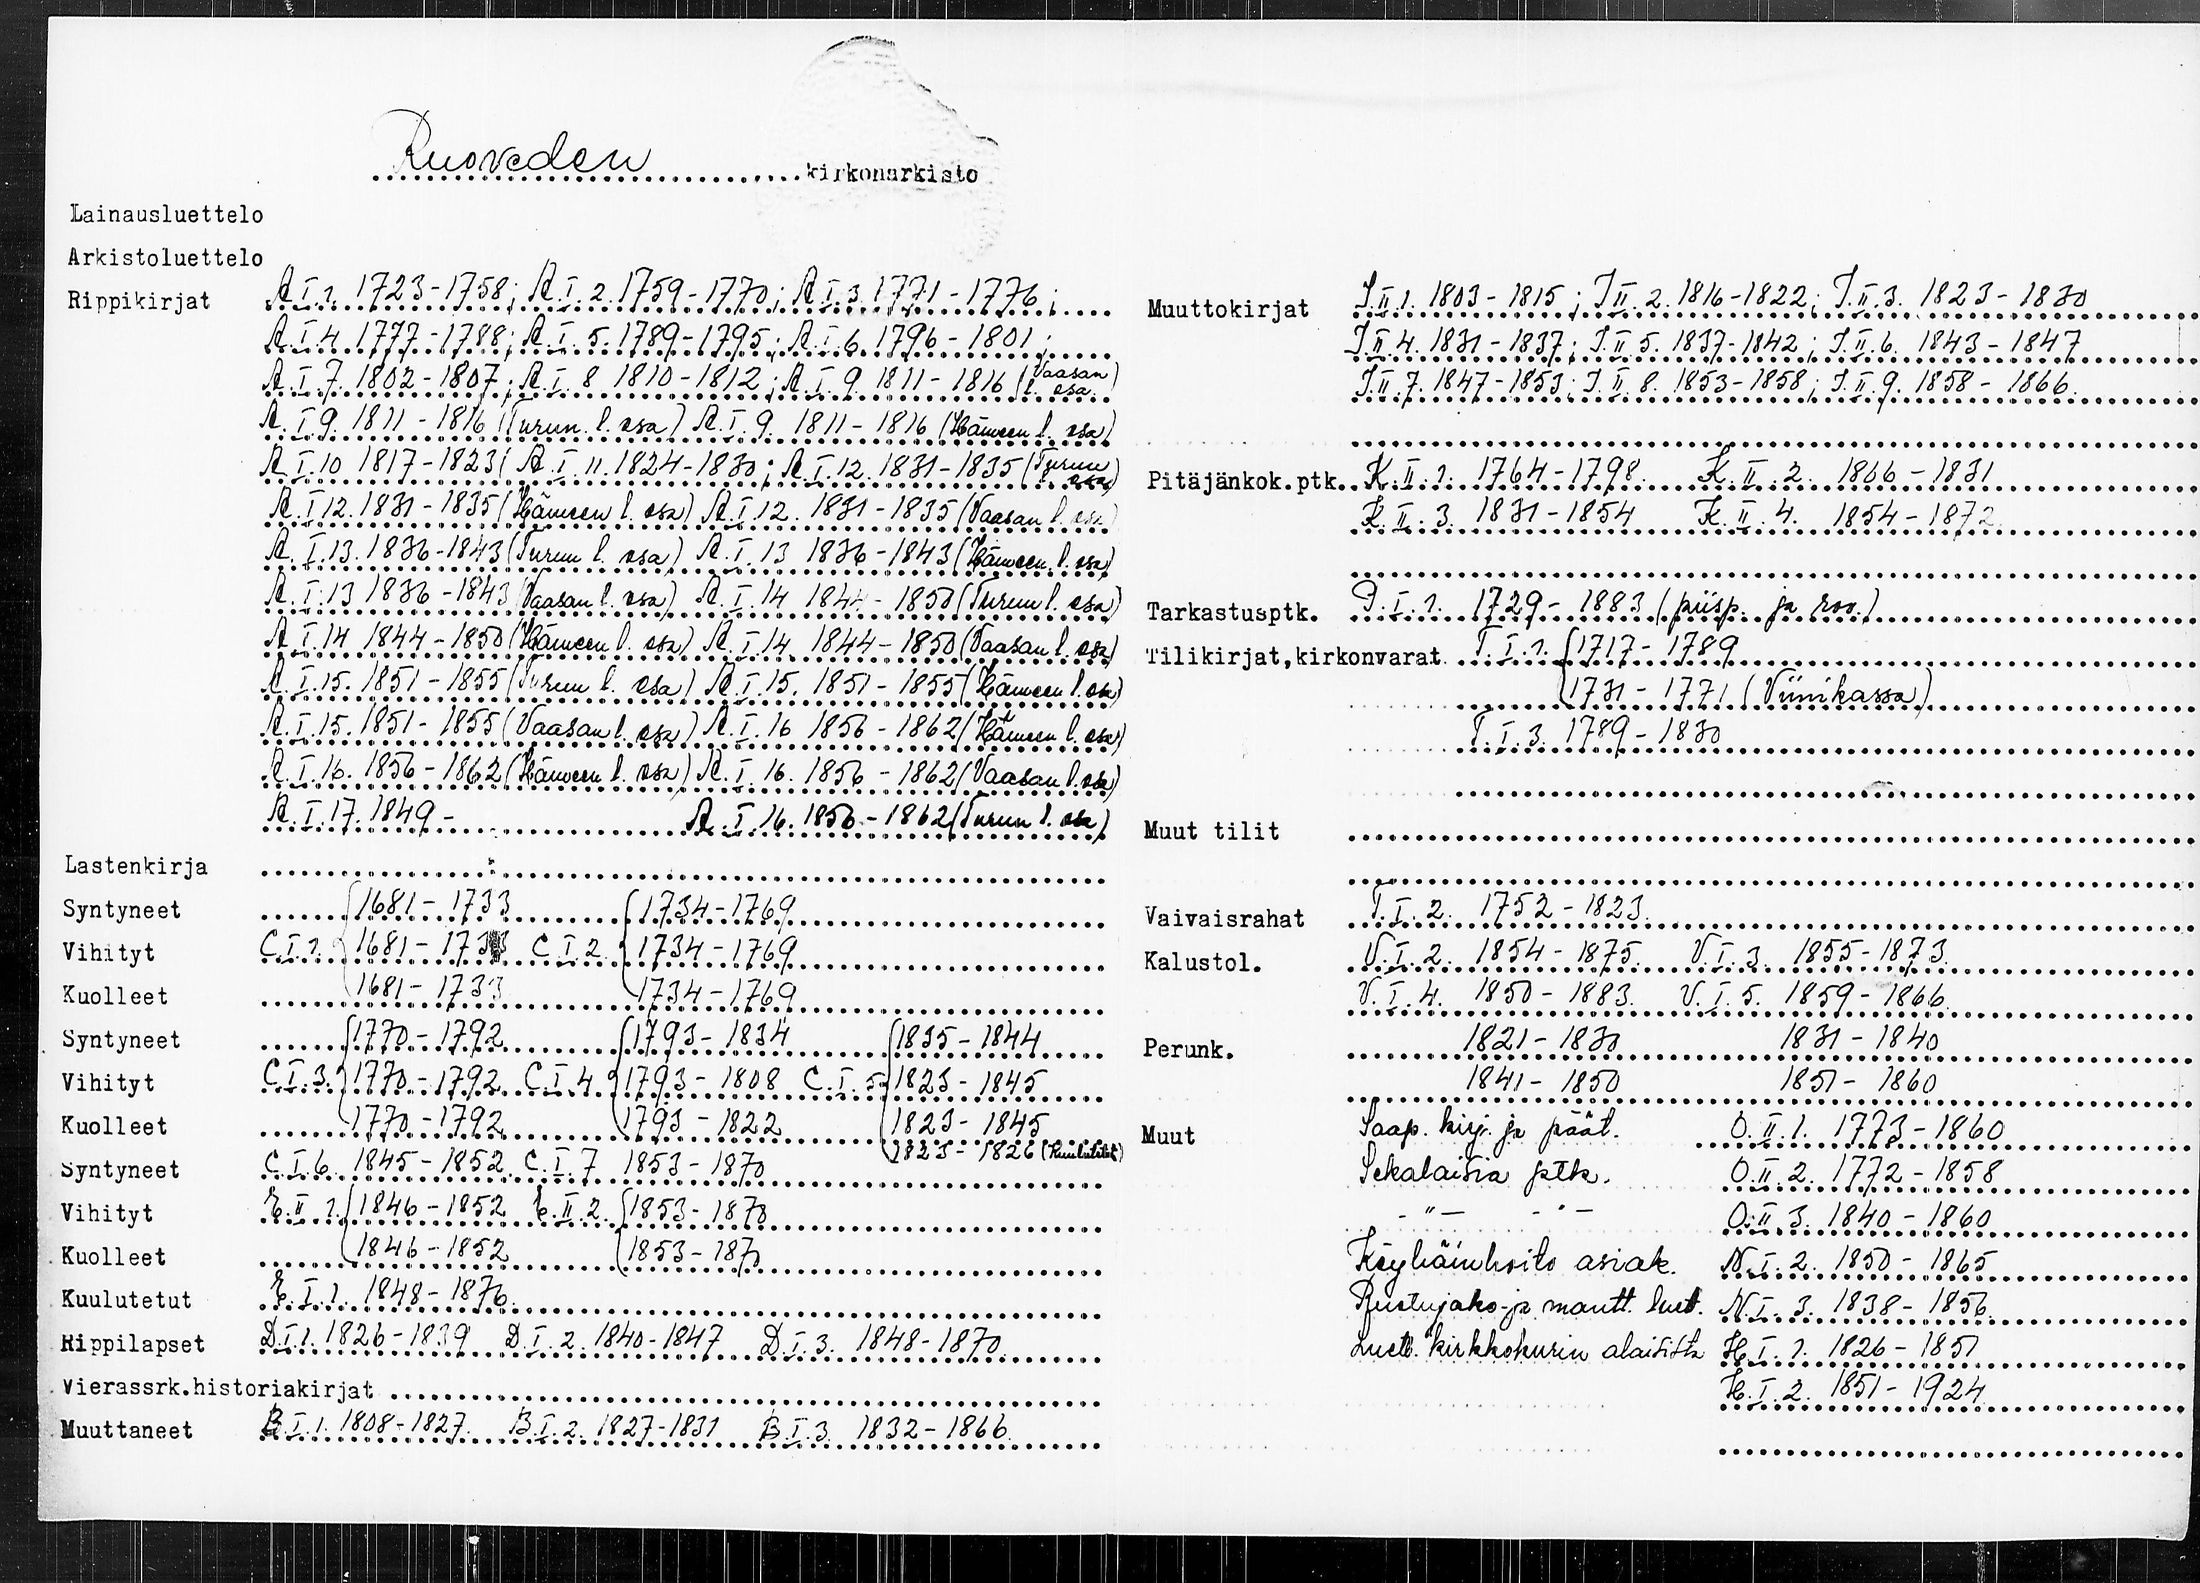 Ruoveden kirkonarkisto
Lainausluettelo
Arkistoluettelo
Rippikirjat A.I.1. 1723-1758; A.I.2. 1759-1770; A.I.3. 1771-1776;
A.I.4. 1777-1788; A.I.5. 1789-1795; A.I.6. 1796-1801;
A.I.7. 1802-1807; A.I.8 1810-1812; A.I.9. 1811-1816 (Vaasan l. osa)
A.I.9. 1811-1816 (Turun l. osa) A.I.9. 1811-1816 (Hämeen l. osa)
A.I.10 1817-1823; A.I.11. 1824-1830; A.I.12. 1831-1835 (Turun osa)
A.I.12. 1831-1835 (Hämeen l. osa) A.I.12. 1831-1835 (Vaasan l. osa)
A.I.13. 1836-1843 (Turun l. osa) A.I.13 1836-1843 (Hämeen l. osa)
A.I.13 1836-1843 (Vaasan l. osa) A.I.14 1844-1850 (Turun l. osa)
A.I.14 1844-1850 (Hämeen l. osa) A.I.14 1844-1850 (Vaasan l. osa)
A.I.15. 1851-1855 (Turun l. osa) A.I.15. 1851-1855 (Hämeen l. osa)
A.I.15. 1851-1855 (Vaasan l. osa) A.I.16 1856-1862 (Hämeen l. osa)
A.I.16. 1856-1862 (Hämeen l. osa) A.I.16. 1856-1862 (Vaasan l. osa)
A.I.17. 1849- A.I.16. 1856-1862 (Turun l. osa)
Lastenkirja
Syntyneet 1681-1733 1734-1769
Vihityt C.I.1. 1681-1733 C.I.2. 1734-1769
Kuolleet 1681-1733 1734-1769
Syntyneet 1770-1792 1793-1834 1835-1844
Vihityt C.I.3. 1770-1792 C.I.4. 1793-1808 C.I.5. 1823-1845
Kuolleet 1770-1792 1793-1822 1823-1845
1823-1826 (Kuulutetut)
Syntyneet C.I.6. 1845-1852 C.I.7 1853-1870
Vihityt E.II.1. 1846-1852 E.II.2. 1853-1870
Kuolleet 1846-1852 1853-187
Kuulutetut E.I.1. 1848-1876.
Rippilapset D.I.1. 1826-1839 D.I.2. 1840-1847 D.I.3. 1848-1870
Vierassrk.historiakirjat
Muuttaneet B.I.1. 1808-1827. B.I.2. 1827-1831 B.I.3. 1832-1866.
Muuttokirjat J.II.1. 1803-1815; J.II.2. 1816-1822; J.II.3. 1823-1830
J.II.4. 1831-1837; J.II.5. 1837-1842; J.II.6. 1843-1847
J.II.7. 1847-1853; J.II.8. 1853-1858; J.II.9. 1858-1866.
Pitäjänkok.ptk. K.II.1. 1764-1798. K.II.2. 1806-1831
K.II.3. 1831-1854 K.II.4. 1854-1872.
Tarkastusptk. P.I.1. 1729-1883 (piisp. ja rov.)
Tilikirjat,kirkonvarat T.I.1. 1717-1789
1731-1771 (Viinikassa)
T.I.3. 1789-1830
Muut tilit
Vaivaisrahat T.I.2. 1752-1823.
Kalustol. V.I.2. 1854-1875. V.I.3. 1855-1873.
V.I.4. 1850-1883. V.I.5. 1859-1866.
Perunk. 1821-1830 1831-1840
1841-1850 1851-1860
Muut Saap. kirj. ja päät. O.II.1. 1773-1860
Sekalaisia ptk. O.II.2. 1772-1858
-"- -"- O.II.3. 1840-1860
Köyhäinhoito asiak. N.I.2. 1850-1865
Ruotujako- ja mantt. luet. N.I.3. 1838-1856.
Luett. kirkkokurin alaisista H.I.1. 1826-1851
H.I.2. 1851-1924